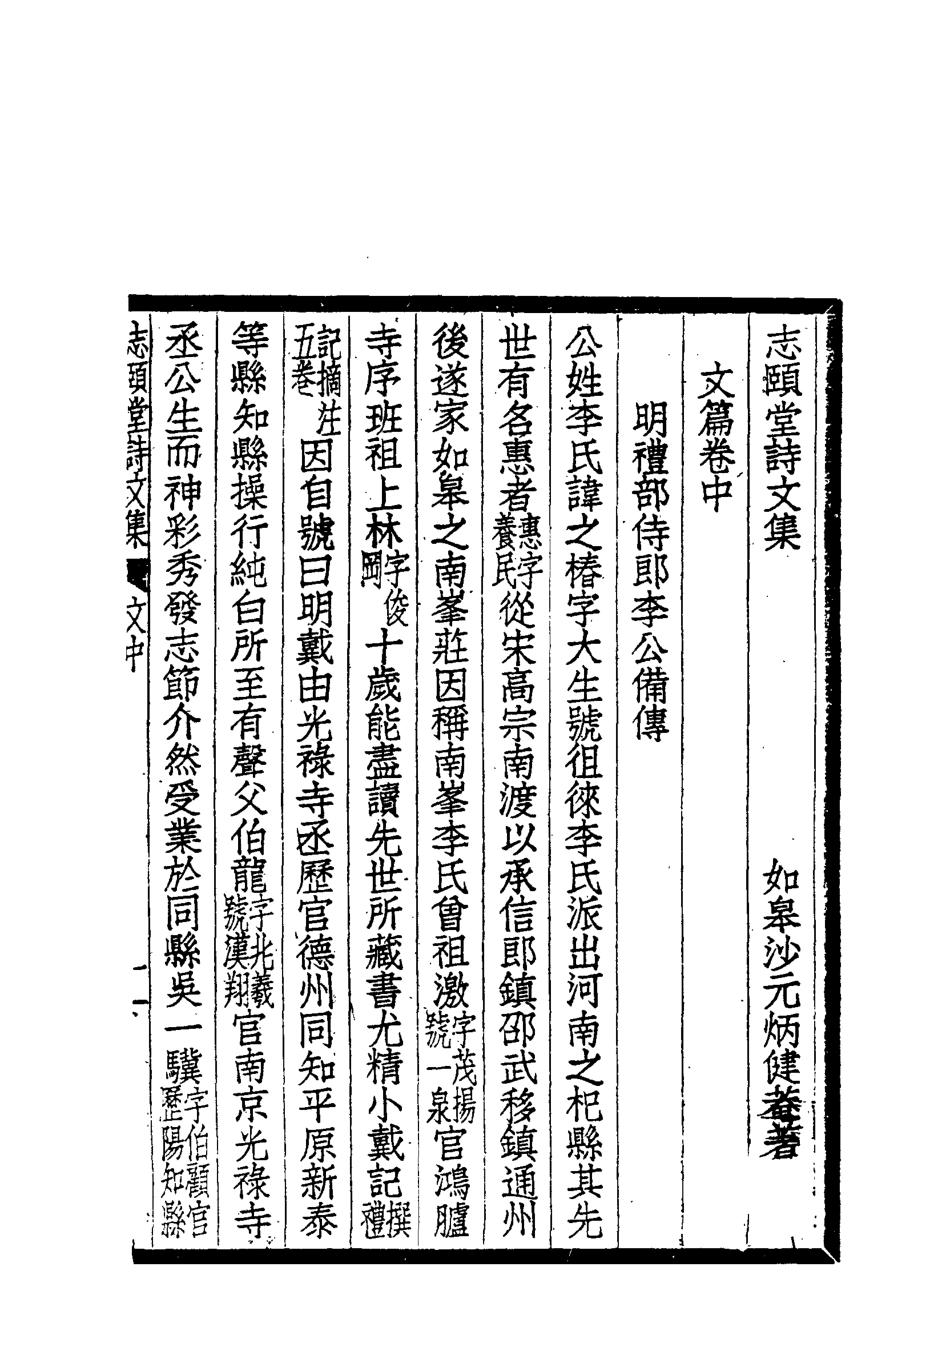 志頤堂詩文集　如皋沙元炳健菴著
文篇卷中
明禮部侍郎李公備傳
公姓李氏諱之椿字大生號徂徠李氏派出河南之杞縣其先
世有名惠者惠字養民從宋高宗南渡以承信郎鎮邵武移鎮通州
後遂家如皋之南峯莊因稱南峯李氏曾祖激字茂揚號一泉官鴻臚
寺序班祖上林字俊岡十歲能盡讀先世所藏書尤精小戴記撰禮
記摘注五卷因自號曰明戴由光祿寺丞歷官德州同知平原新泰
等縣知縣操行純白所至有聲父伯龍字北羲號漢翔官南京光祿寺
丞公生而神彩秀發志節介然受業於同縣吳一驥字伯顧官歷陽知縣
志頤堂詩文集　文中　一